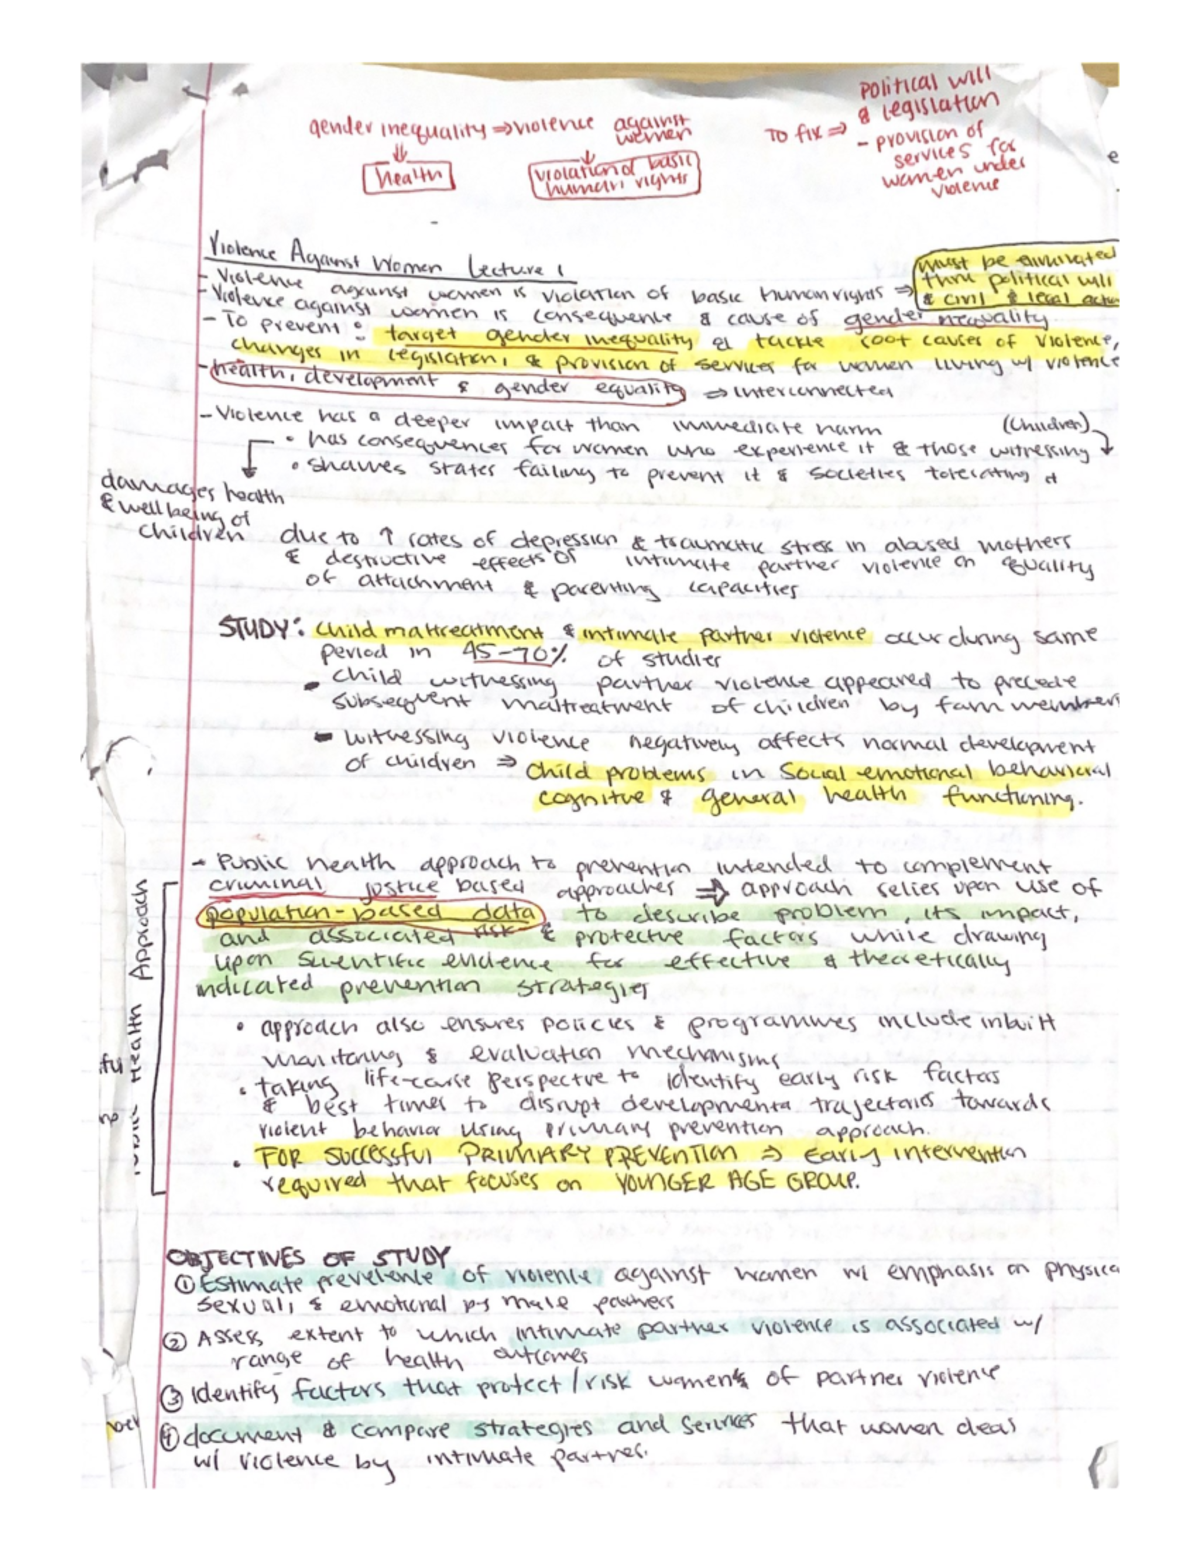 political will
& legislation
gender inequality ⇒ violence against women
To fix ⇒
- provision of
services for
women under
violence
health
violation of basic
human rights
e
Violence Against Women Lecture 1
must be eliminated
thru political will
& civil & legal action
- Violence against women is violation of basic human rights ⇒
- Violence against women is consequence & cause of gender inequality
- To prevent: target gender inequality & tackle root causes of violence,
changes in legislation, & provision of services for women living w/ violence
- health, development & gender equality ⇒ interconnected
- Violence has a deeper impact than immediate harm (children)
• has consequences for women who experience it & those witnessing
• shames states failing to prevent it & societies tolerating it
damages health
& wellbeing of
children
due to ↑ rates of depression & traumatic stress in abused mothers
& destructive effects of intimate partner violence on quality
of attachment & parenting capacities
STUDY: Child maltreatment & intimate partner violence occur during same
period in 45-70% of studies
- child witnessing partner violence appeared to precede
subsequent maltreatment of children by fam members
- witnessing violence negatively affects normal development
of children ⇒ Child problems in social emotional behavioral
cognitve & general health functioning.
- Public health approach to prevention intended to complement
criminal justice based approaches ⇒ approach relies upon use of
population-based data to describe problem, its impact,
and associated risk & protectve factors while drawing
upon scientific evidence for effective & theoretically
indicated prevention strategies
• approach also ensures policies & programmes include inbuilt
monitoring & evaluation mechanisms
• taking life-corse perspectve to identify early risk factors
& best times to disrupt developmental trajectories towards
violent behavior using primary prevention approach.
• FOR SUCCESSFUL PRIMARY PREVENTION ⇒ Early intervention
required that focuses on YOUNGER AGE GROUP.
Health Approach
OBJECTIVES OF STUDY
① Estimate prevelence of violence against women w/ emphasis on physica
sexual, & emotional by male partners
② Assess extent to which intimate partner violence is associated w/
range of health outcomes
③ Identify factors that protect/risk women of partner violence
④ document & compare strategies and services that women deas
w/ violence by intimate partner.